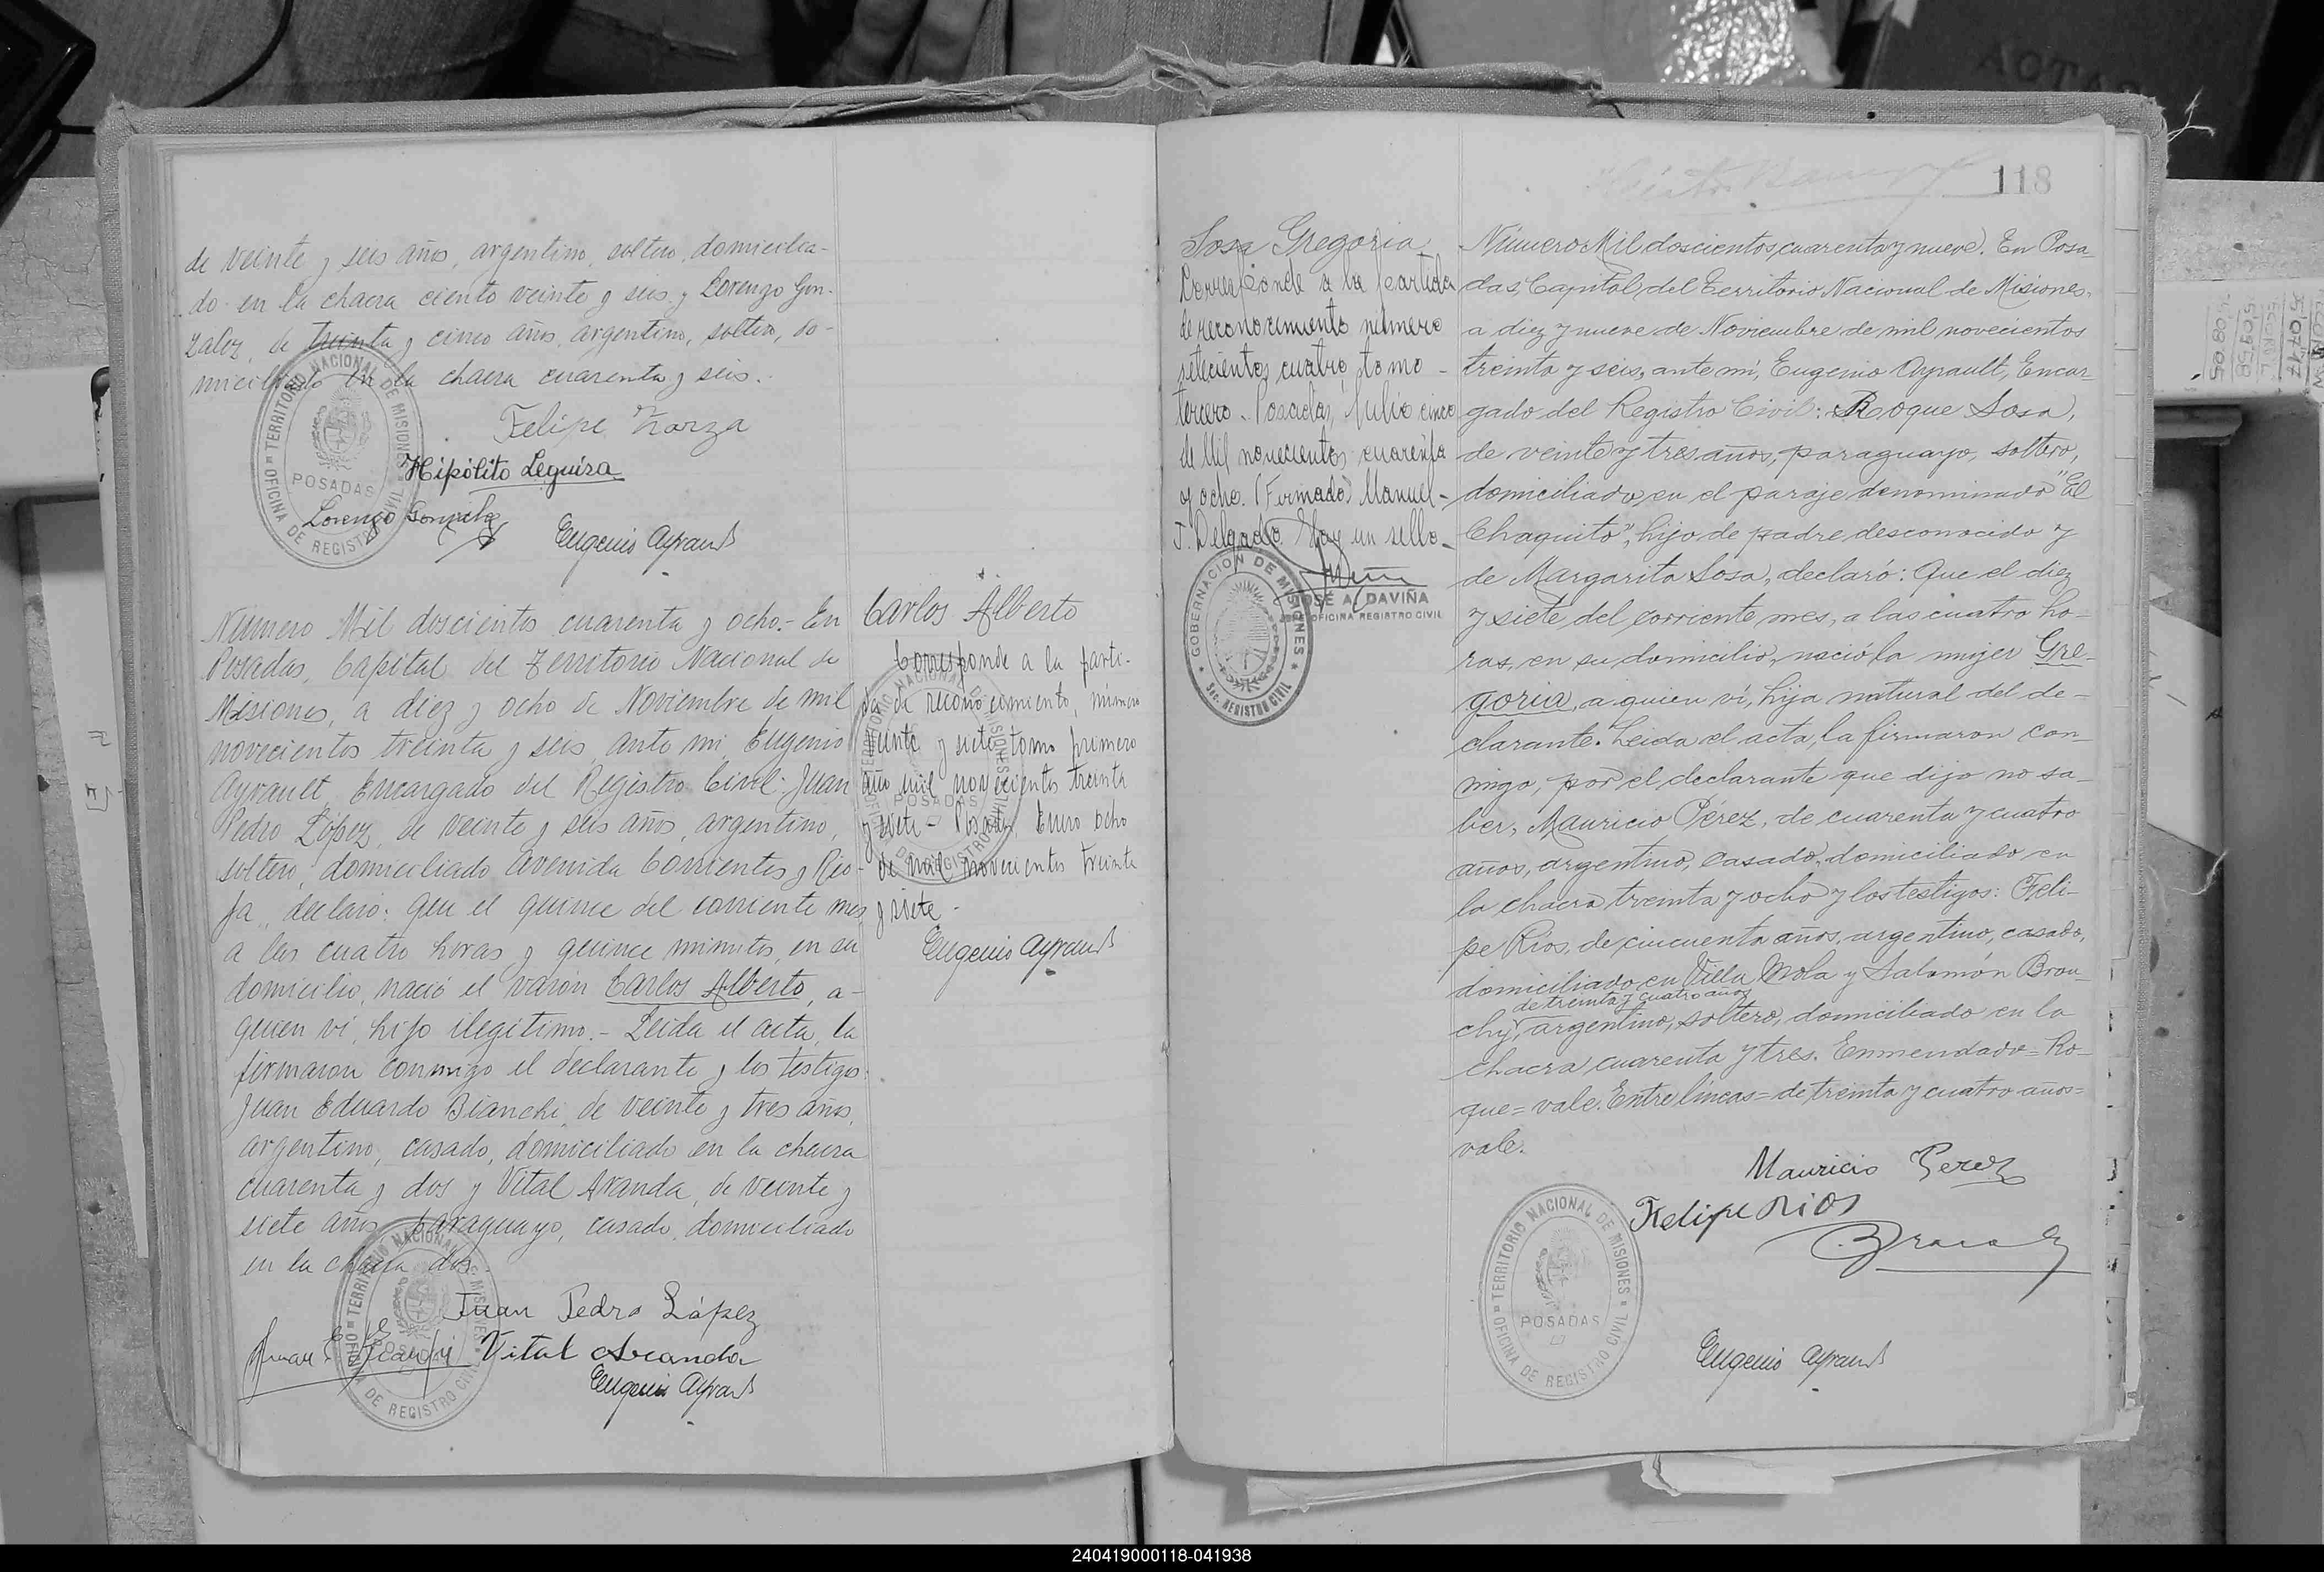 de veinte y seis años, argentino, soltero, domicilia-
do en la chacra ciento veinte y seis y Lorenzo Gon-
zalez, de treinta y cinco años, argentino, soltero, do-
miciliado en la chacra cuarenta y seis.
Felipe Zarza
Hipólito Leguiza
Lorenzo Gonzalez
Eugenio Ayrault
OFICINA DE REGISTRO CIVIL
TERRITORIO NACIONAL DE MISIONES
POSADAS
Número Mil doscientos cuarenta y ocho.- En
Posadas, Capital del Territorio Nacional de
Misiones, a diez y ocho de Noviembre de mil
novecientos treinta y seis, ante mi Eugenio
Ayrault, Encargado del Registro Civil: Juan
Pedro López, de veinte y seis años, argentino,
soltero, domiciliado Avenida Corrientes y Rio-
ja, declaró: Que el quince del corriente mes
a las cuatro horas y quince minutos, en su
domicilio, nació el varón Carlos Alberto, a-
quien ví, hijo ilegítimo.- Leida el acta, la
firmaron conmigo el declarante y los testigos:
Juan Eduardo Bianchi, de veinte y tres años,
argentino, casado, domiciliado en la chacra
cuarenta y dos y Vital Aranda, de veinte y
siete años, paraguayo, casado, domiciliado
en la chacra dos.
Juan Pedro López
Juan E. Bianchi Vital Aranda
Eugenio Ayrault
TERRITORIO NACIONAL DE MISIONES
POSADAS
OFICINA DE REGISTRO CIVIL
Carlos Alberto
Corresponde a la parti-
da de reconocimiento, número
veinte y siete, tomo primero
año mil novecientos treinta
y siete - Posadas, Enero ocho
de mil novecientos treinta
y siete -
Eugenio Ayrault
TERRITORIO NACIONAL DE MISIONES
POSADAS
OFICINA DE REGISTRO CIVIL
118
Sosa Gregoria
Corresponde a la partida
de reconocimiento número
setecientos cuatro, tomo -
tercero - Posadas, Julio cinco
de Mil novecientos cuarenta
y ocho. (Firmado) Manuel -
J. Delgado. Hay un sello -
JOSÉ A. DAVIÑA
OFICINA REGISTRO CIVIL
GOBERNACION DE MISIONES
Sec. REGISTRO CIVIL
Número Mil doscientos cuarenta y nueve. En Posa
das, Capital del Territorio Nacional de Misiones,
a diez y nueve de Noviembre de mil novecientos
treinta y seis, ante mí, Eugenio Ayrault, Encar-
gado del Registro Civil: Roque Sosa,
de veinte y tres años, paraguayo, soltero,
domiciliado en el paraje denominado "El
Chaquito", hijo de padre desconocido y
de Margarita Sosa, declaró: Que el diez
y siete del corriente mes, a las cuatro ho-
ras, en su domicilio, nació la mujer Gre-
goria, a quien ví, hija natural del de-
clarante. Leida el acta, la firmaron con-
migo, por el declarante que dijo no sa-
ber, Mauricio Pérez, de cuarenta y cuatro
años, argentino, casado, domiciliado en
la chacra treinta y ocho y los testigos: Feli-
pe Rios, de cincuenta años, argentino, casado,
domiciliado en Villa Mola y Salomón Brou-
de treinta y cuatro años
chy, argentino, soltero, domiciliado en la
chacra cuarenta y tres. Enmendado = Ro-
que = vale. Entre líneas = de treinta y cuatro años =
vale.
Mauricio Perez
Felipe Rios
Eugenio Ayrault
TERRITORIO NACIONAL DE MISIONES
POSADAS
OFICINA DE REGISTRO CIVIL
240419000118-041938